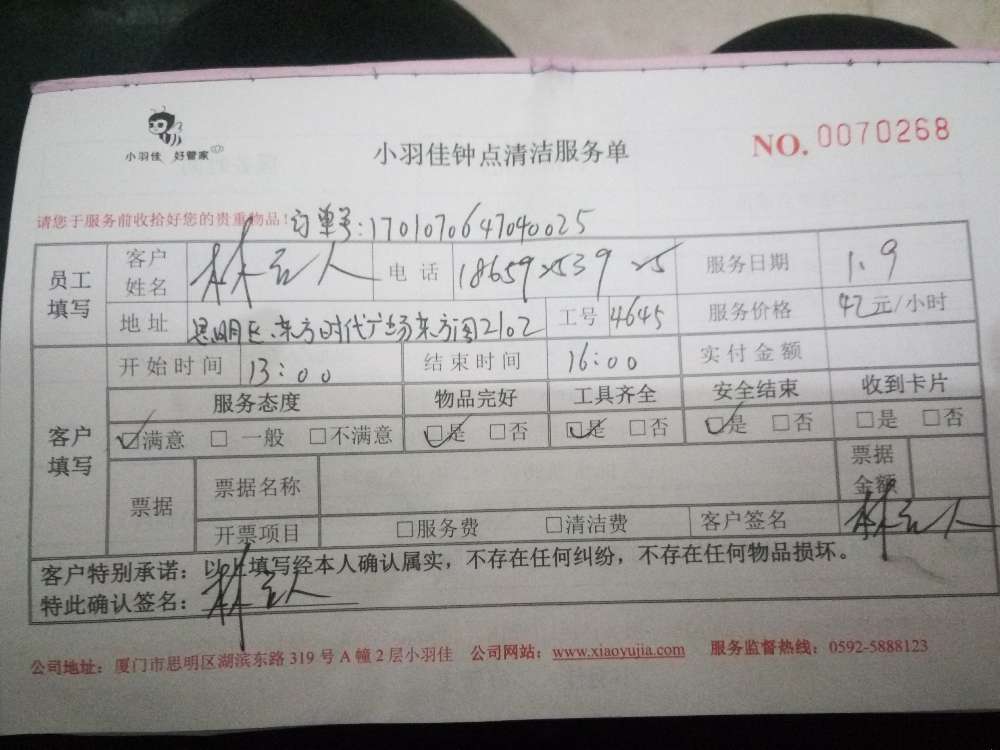 小羽佳 好管家
小羽佳钟点清洁服务单
NO. 0070268
请您于服务前收拾好您的贵重物品！订单号:1701070647040025
员工填写 客户姓名 林 人 电话 服务日期 1.9
地址 思明区.东方时代广场东方阁2102 工号 4645 服务价格 42元/小时
客户填写 开始时间 13:00 结束时间 16:00 实付金额
服务态度 物品完好 工具齐全 安全结束 收到卡片
☑满意 □一般 □不满意 ☑是 □否 ☑是 □否 ☑是 □否 □是 □否
票据 票据名称 票据金额
开票项目 □服务费 □清洁费 客户签名 林 人
客户特别承诺：以上填写经本人确认属实，不存在任何纠纷，不存在任何物品损坏。
特此确认签名：林 人
公司地址：厦门市思明区湖滨东路 319 号 A 幢 2 层小羽佳 公司网站：www.xiaoyujia.com 服务监督热线：0592-5888123